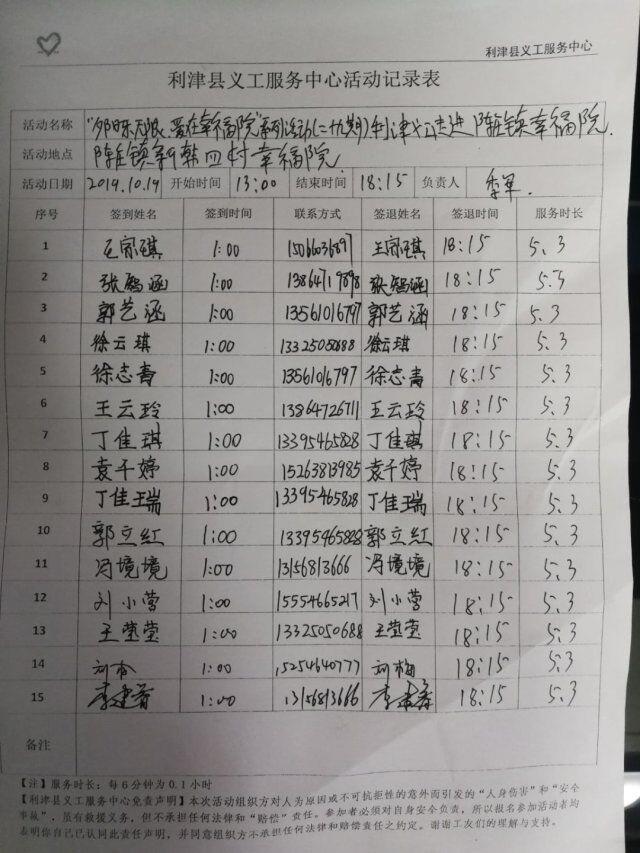 利津县义工服务中心
利津县义工服务中心活动记录表
活动名称 "夕阳无限 爱在幸福院"系列活动(二十九期)利津义工走进陈庄镇幸福院.
活动地点 陈庄镇新韩四村幸福院
活动日期 2019.10.19 开始时间 13:00 结束时间 18:15 负责人 李军.
序号 签到姓名 签到时间 联系方式 签退姓名 签退时间 服务时长
1 1:00 18:15 5.3
2 张 涵 1:00 张 涵 18:15 5.3
3 郭艺涵 1:00 13561016797 郭艺涵 18:15 5.3
4 徐云琪 1:00 13325050888 徐云琪 18:15 5.3
5 徐志青 1:00 13561016797 徐志青 18:15 5.3
6 王云玲 1:00 13864726711 王云玲 18:15 5.3
7 丁佳琪 1:00 13395465828 丁佳琪 18:15 5.3
8 袁千婷 1:00 15263813985 袁千婷 18:15 5.3
9 丁佳瑞 1:00 13395465828 丁佳瑞 18:15 5.3
10 郭立红 1:00 13395465828 郭立红 18:15 5.3
11 冯境境 1:00 13156813666 冯境境 18:15 5.3
12 刘小营 1:00 15554665217 刘小营 18:15 5.3
13 王莹莹 1:00 13325050688 王莹莹 18:15 5.3
14 刘梅 1:00 15254640777 刘梅 18:15 5.3
15 李建 1:00 13156813666 李建 18:15 5.3
备注
【注】服务时长：每6分钟为0.1小时
【利津县义工服务中心免责声明】本次活动组织方对人为原因或不可抗拒性的意外而引发的"人身伤害"和"安全
事故"，虽有救援义务，但不承担任何法律和"赔偿"责任。参加者必须对自身安全负责，所以报名参加活动者均
表明你自己已认同此责任声明，并同意组织方不承担任何法律和赔偿责任之约定。谢谢工友们的理解与支持。